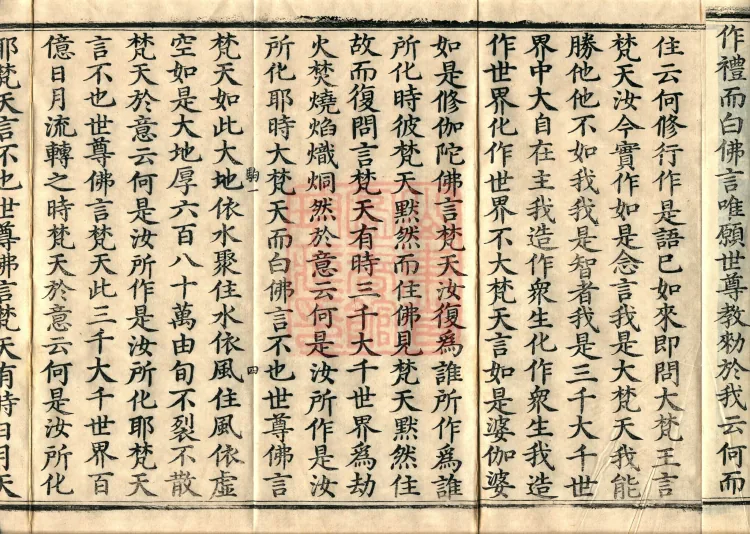 作禮而白佛言唯願世尊教勑於我云何而
住云何修行作是語已如來即問大梵王言
梵天汝今實作如是念言我是大梵天我能
勝他他不如我我是智者我是三千大千世
界中大自在主我造作衆生化作衆生我造
作世界化作世界不大梵天言如是婆伽婆
如是修伽陀佛言梵天汝復爲誰所作爲誰
所化時彼梵天默然而住佛見梵天默然住
故而復問言梵天有時三千大千世界爲劫
火焚燒焰熾烔然於意云何是汝所作是汝
所化耶時大梵天而白佛言不也世尊佛言
駒一 四
梵天如此大地依水聚住水依風住風依虛
空如是大地厚六百八十萬由旬不裂不散
梵天於意云何是汝所作是汝所化耶梵天
言不也世尊佛言梵天此三千大千世界百
億日月流轉之時梵天於意云何是汝所化
耶梵天言不也世尊佛言梵天有時日月天